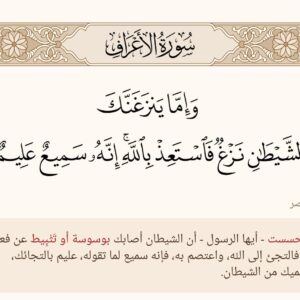 سُورَةُ الأَعْرَافِ
وَإِمَّا يَنزَغَنَّكَ
لشَّيْطَٰنِ نَزْغٌ فَٱسْتَعِذْ بِٱللَّهِ ۚ إِنَّهُۥ سَمِيعٌ عَلِيمٌ
حسست - أيها الرسول - أن الشيطان أصابك بوسوسة أو تَثْبِيط عن فعـ
فالتجئ إلى الله، واعتصم به، فإنه سميع لما تقوله، عليم بالتجائك،
ميك من الشيطان.